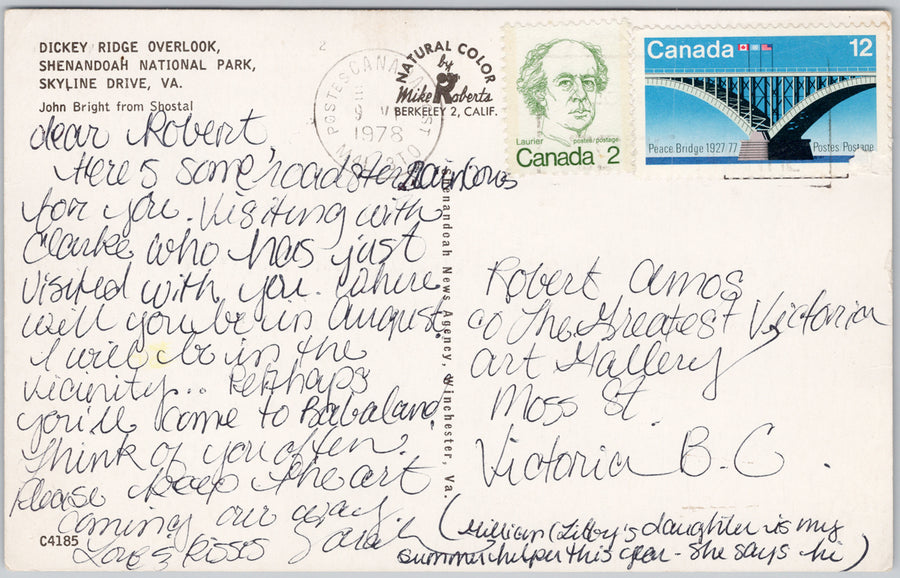 DICKEY RIDGE OVERLOOK,
SHENANDOAH NATIONAL PARK,
SKYLINE DRIVE, VA.
John Bright from Shostal
2
NATURAL COLOR
by
Mike Roberts
BERKELEY 2, CALIF.
POSTES CANADA POST
9 V
1978
Laurier postes/postage
Canada 2
Canada 12
Peace Bridge 1927 77 Postes Postage
dear Robert,
Here's some roadster Rainbows
for you. Visiting with
Clarke who has just
visited with you. Where
will you be in August.
I will be in the
vicinity... Perhaps
you'll come to Babaland.
Think of you often.
Please keep the art
coming our way
Love & Kisses Sarah
(Millian (Libby's daughter is my
summer helper this year - she says hi)
Shenandoah News Agency, Winchester, Va.
Robert Amos
c/o The Greatest Victorian
Art Gallery
Moss St.
Victoria B.C.
C4185